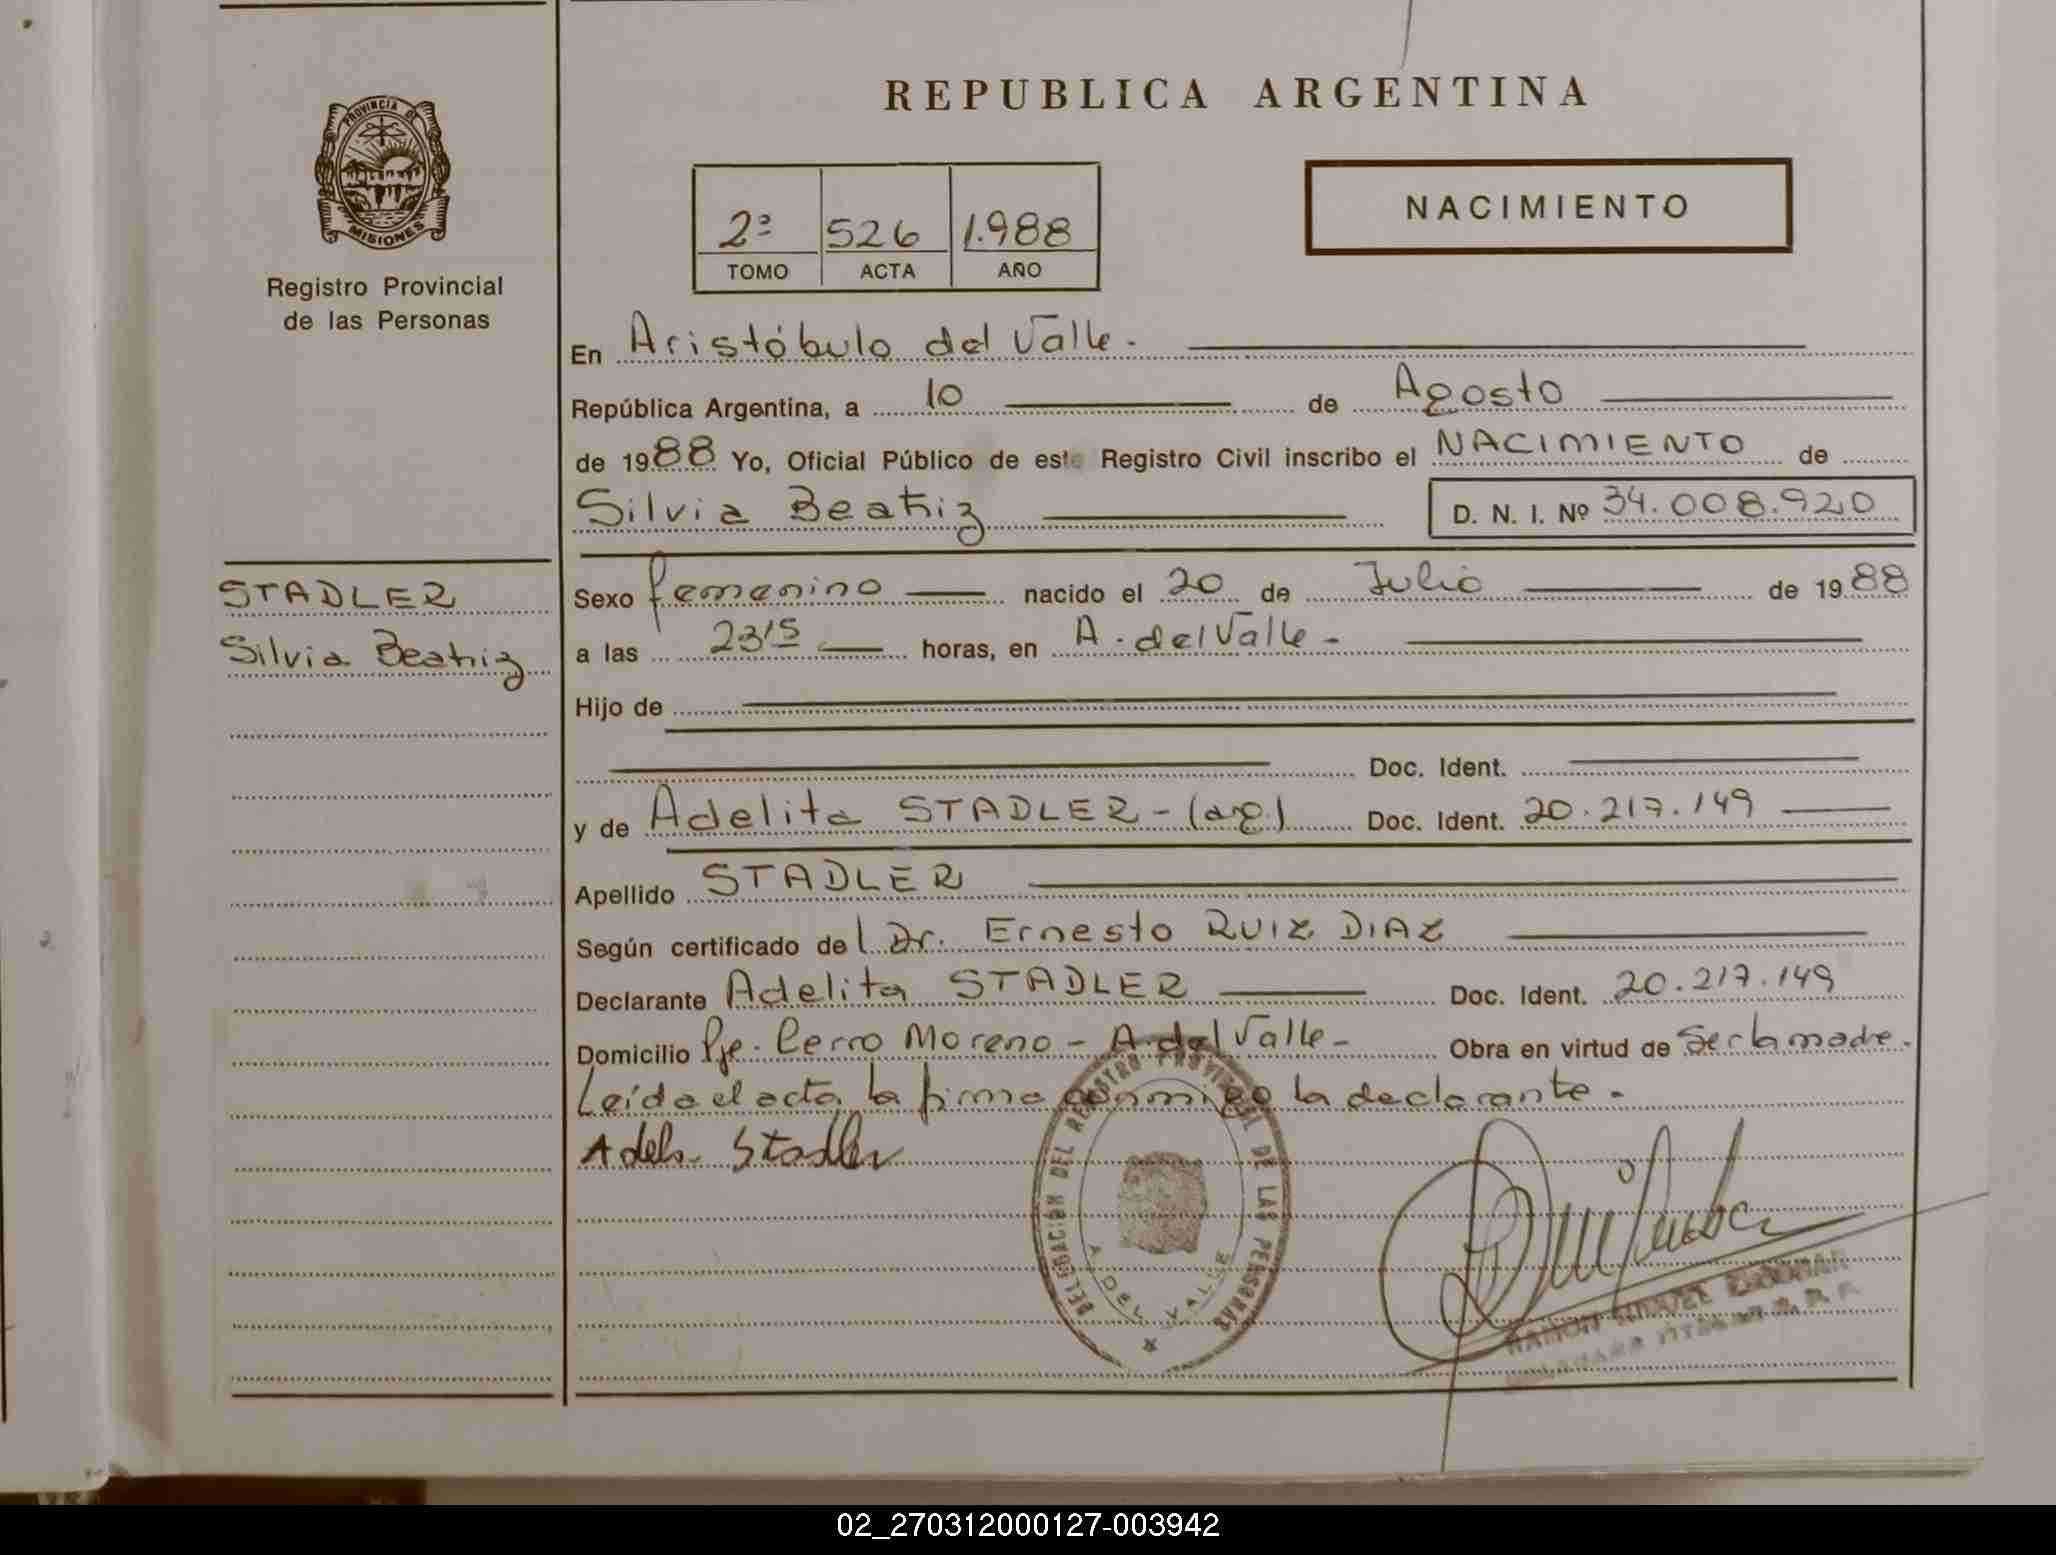 REPUBLICA ARGENTINA
PROVINCIA DE
MISIONES
Registro Provincial
de las Personas
2ª 526 1.988
TOMO ACTA AÑO
NACIMIENTO
En Aristóbulo del Valle.
República Argentina, a 10 de Agosto
de 1988 Yo, Oficial Público de este Registro Civil inscribo el NACIMIENTO de
Silvia Beatriz D. N. I. Nº 34.008.920
STADLER
Silvia Beatriz
Sexo femenino nacido el 20 de Julio de 1988
a las 23,15 horas, en A. del Valle.-
Hijo de
Doc. Ident.
y de Adelita STADLER-(arg.) Doc. Ident. 20.217.149
Apellido STADLER
Según certificado del Dr. Ernesto RUIZ DIAZ
Declarante Adelita STADLER Doc. Ident. 20.217.149
Domicilio Pje. Cerro Moreno - A.del Valle- Obra en virtud de ser la madre.
Leída el acta, la firma conmigo la declarante.
Stadler
DELEGACIÓN DEL REGISTRO PROVINCIAL DE LAS PERSONAS
A. DEL VALLE
RAMON MIGUEL
02_270312000127-003942